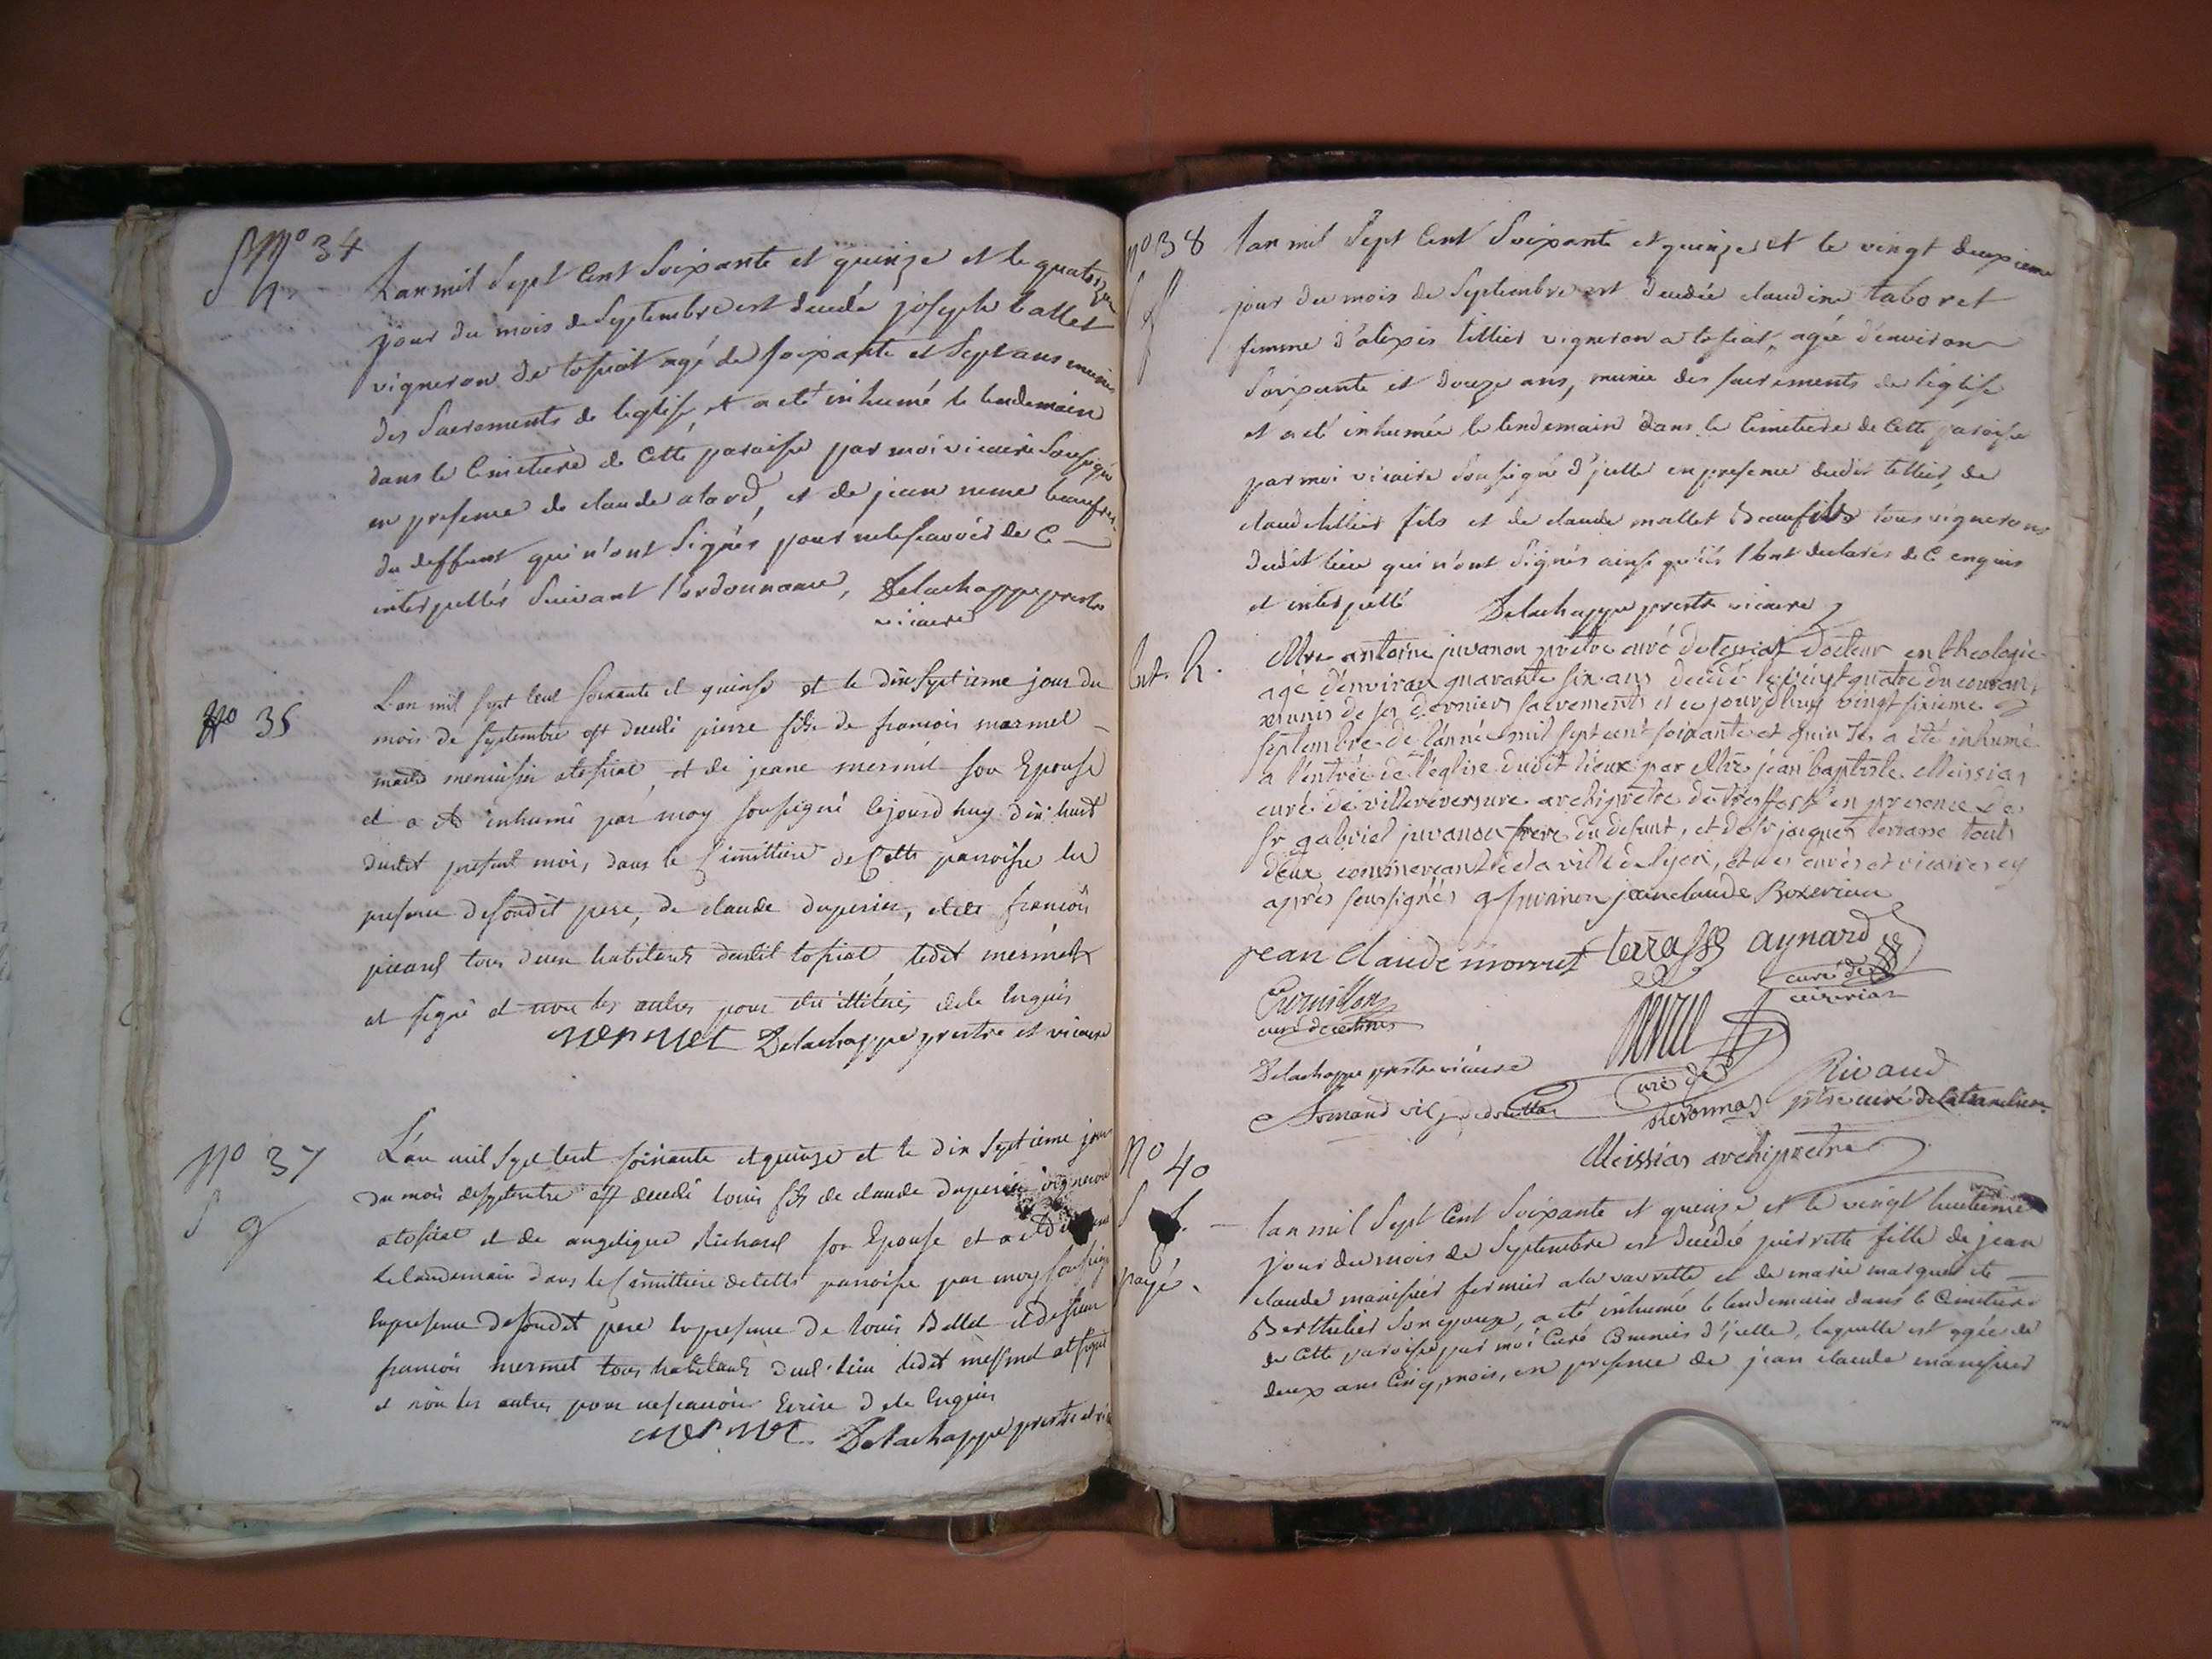 No 34
h
L'an mil Sept Cent Soixante et quinze et le quatorze
jour du mois de Septembre est decedé joseph ballet
vigneron de tossiat agé de soixante et Sept ans munis
des Sacrements de leglise, et a eté inhumé le lendemain
dans le Cimetiere de Cette paroisse par moi vicaire Soussigné
en presence de claude alard, et de jean neme beaufrere
du deffunt qui n'ont Signés pour ne le scavoir de C
interpellés Suivant l'ordonnance, Delachappe prestre
vicaire
No 35
L'an mil sept Cent soixante et quinse et le dix Septieme jour du
mois de septembre est decedé pierre fils de francois mermet
menuisier a tossiat et de jeane mermet son Epouse
et a eté inhumé par moy soussigné Cejourd'huy dix huit
dudit present mois, dans le Cimittiere de Cette parroisse en
presence de son dit pere, de claude duperier, et de francois
picard tous deux habitants dudit tossiat ledit mermet
at signé et non les autres pour etre illiterés de ce Enquis
mermet Delachappe prestre et vicaire
No 37
S g
L'an mil Sept Cent soixante et quinze et le dix Septieme jour
du mois de septembre est decedé louis fils de claude duperier vigneron
a tossiat et de angelique Richard son Epouse et a eté
le landemain dans le Cimittiere de Cette parroise par moy soussigné
En presence de son dit pere En presence de louis Bellet et de sieur
francois mermet tous habitants dudt lieu ledit mermet at signé
et non les autres pour ne scavoir Ecrire de ce Enquis
mermet Delachappe prestre et vic
No 38
l'an mil Sept Cent Soixante et quinze et le vingt deuxieme
jour du mois de Septembre est decedée claudine taboret
femme d'alexis tillier vigneron a tossiat, agée d'environ
Soixante et douze ans, munie des sacrements de l'église
et a eté inhumée le lendemain dans le Cimetiere de Cette paroisse
par moi vicaire Soussigné d'jcelle en presence dudit tellier, de
claude tillier fils et de claude mallet Beaufils tous vignerons
dudit lieu qui n'ont Signés ainsi qu'ils l'ont declarés de C enquis
et interpellé Delachappe prestre vicaire
h.
Mre antoine juvanon prêtre curé de tossiat Docteur en theologie
agé d'environ quarante six ans decedé le vingt quatre du courant
munis de ses derniers sacrements et ce jourdhuy vingt sixieme
septembre de l'année mil sept cent soixante et quinze, a été inhumé
a l'entrée de l'église dudit lieux par Mre jean baptiste Meissias
curé de villereversure archiprêtre de treffort en presence de
sr gabriel juvanon frere du defunt, et de sr jacques terrasse tout
deux commercant de la ville de lyon, et des curés et vicaires cy
après soussignés g juvanon jean claude Bozerian
jean claude morrust terrasse aynard
curé de
ceizeriat
curé de
Delachappe prestre vicaire
curé de
peronnas
Rivaud
ptre curé de
Meissias archiprêtre
No 40
payé.
l'an mil Sept Cent Soixante et quinze et le vingt huitieme
jour du mois de Septembre est decedée pierrette fille de jean
claude manissier fermier a la vavrette et de marie marguerite
Berthelier Son epouse, a eté inhumée le lendemain dans le Cimetiere
de Cette paroisse par moi Curé Commis d'jcelle, laquelle est agée de
deux ans Cinq mois, en presence de jean claude manissier